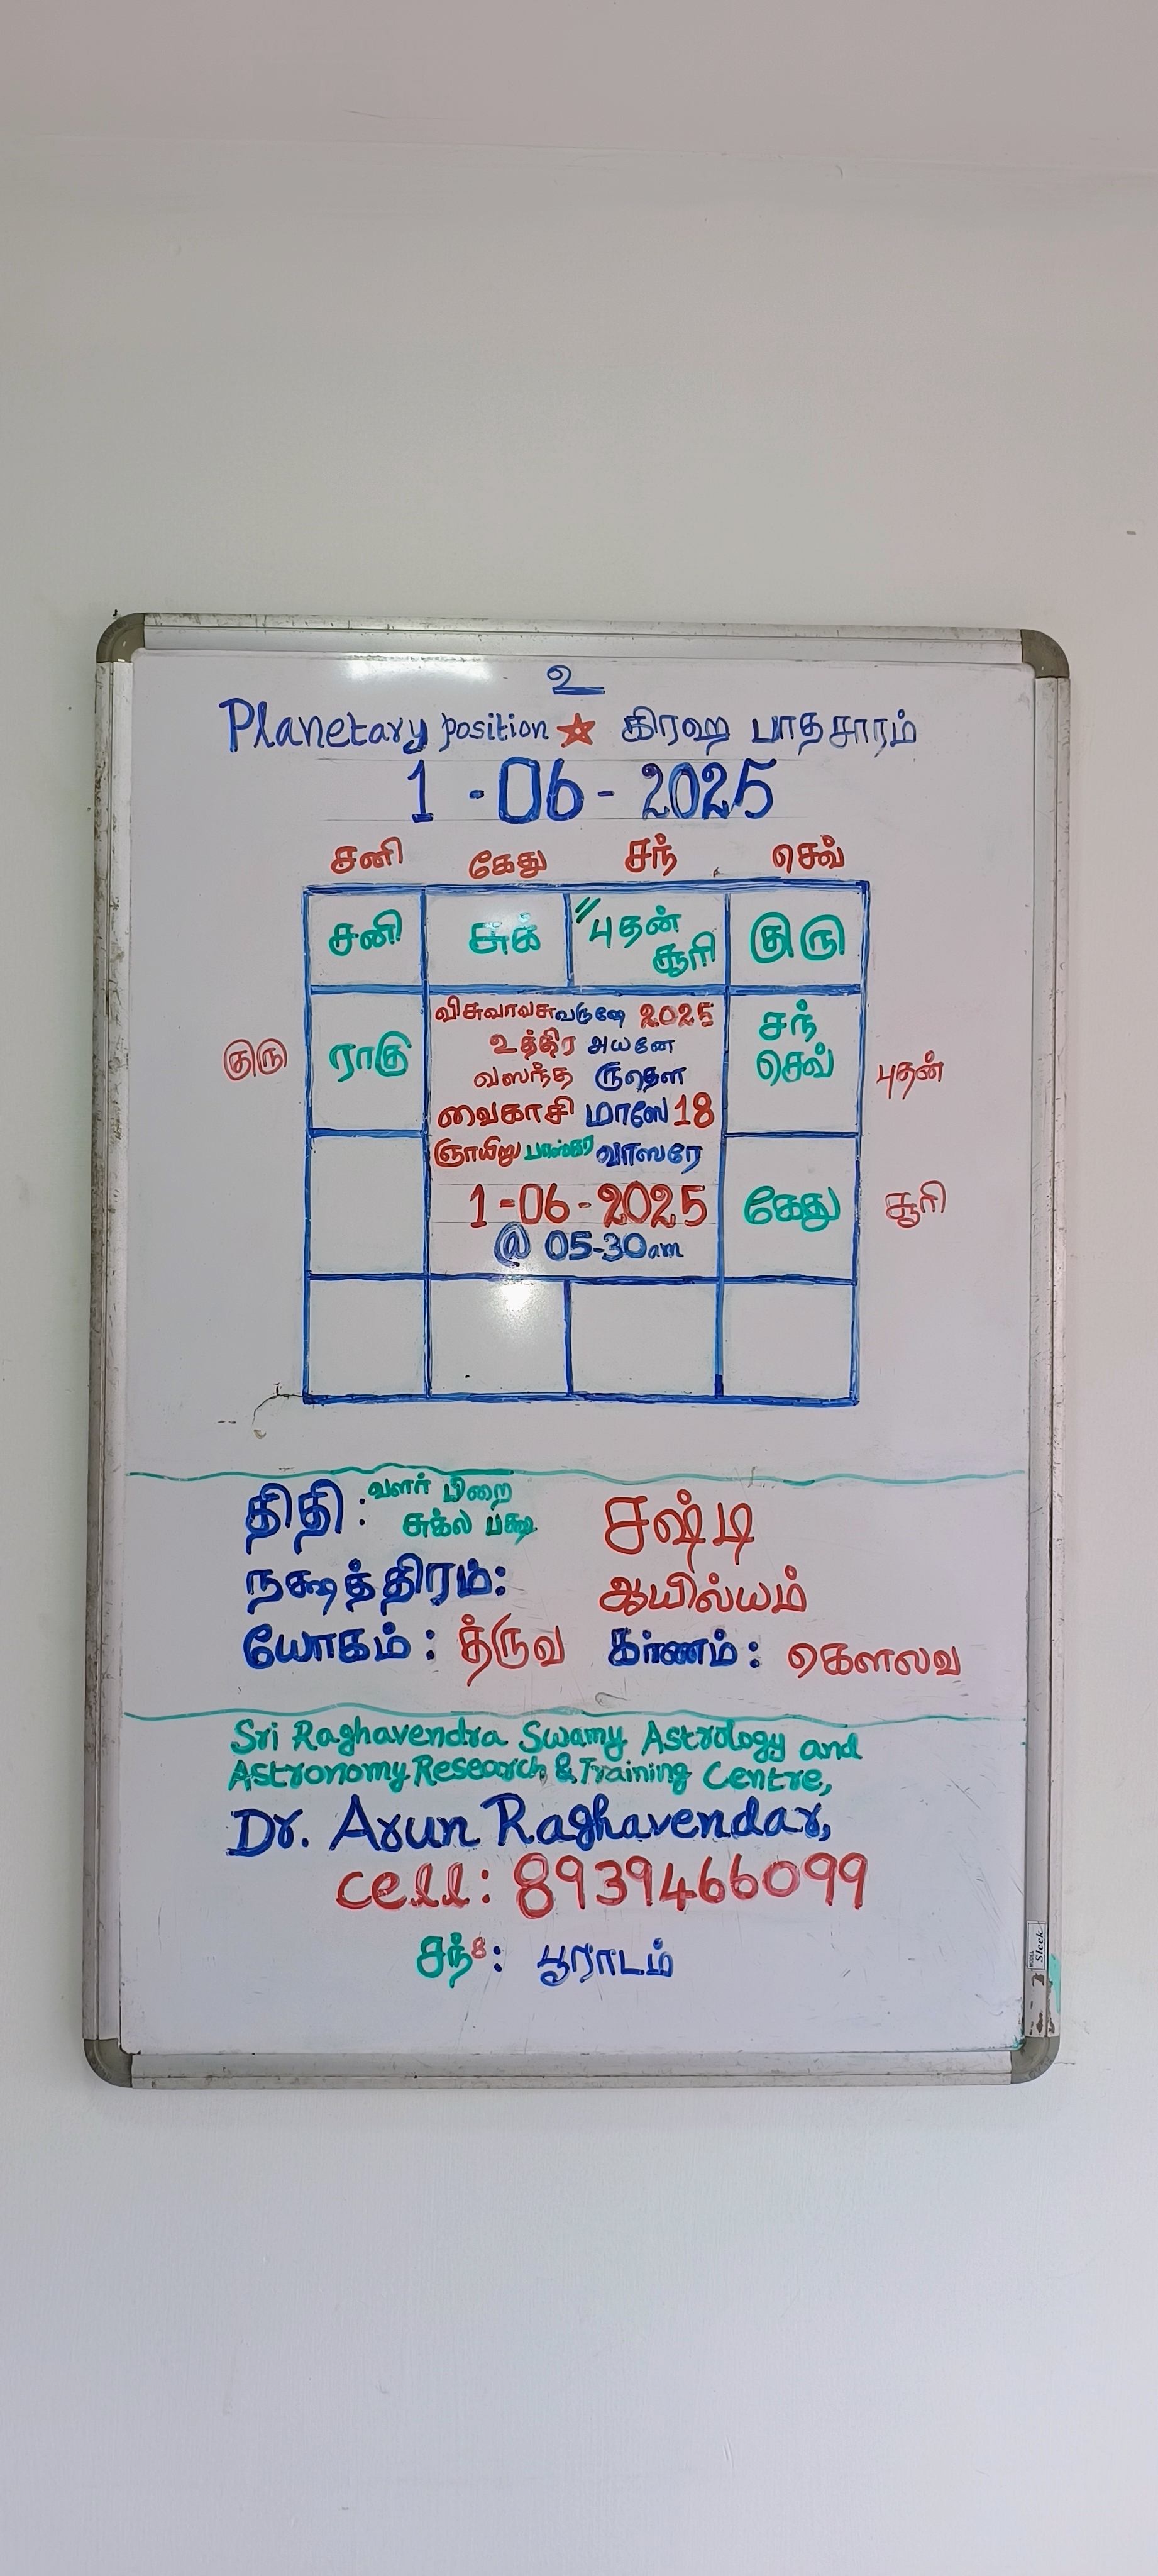 உ
Planetary position ★ கிரஹ பாதசாரம்
1 - 06 - 2025
சனி கேது சந் செவ்
சனி சுக் // புதன் சூரி குரு
விசுவாவசுவருஷே 2025
உத்திர அயனே
வஸந்த ருதௌ
வைகாசி மாஸே 18
ஞாயிறு பாஸ்கர வாஸரே
1-06-2025
@ 05-30am
குரு ராகு சந் செவ் புதன்
கேது சூரி
திதி : வளர் பிறை சுக்ல பக்ஷ சஷ்டி
நக்ஷத்திரம்: ஆயில்யம்
யோகம் : த்ருவ கர்ணம் : கௌலவ
Sri Raghavendra Swamy Astrology and
Astronomy Research & Training Centre,
Dr. Arun Raghavendar,
cell: 8939466099
சந்8: பூராடம்
MODEL Sleek